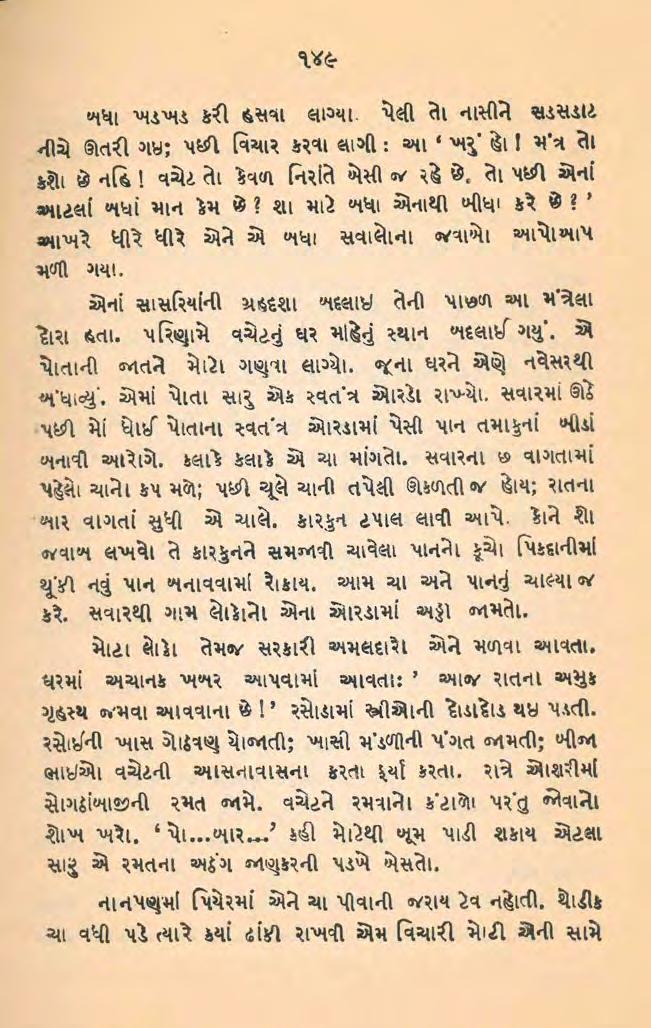 ૧૪૯
બધા ખડખડ કરી હસવા લાગ્યા. પેલી તો નાસીને સડસડાટ
નીચે ઊતરી ગઇ; પછી વિચાર કરવા લાગી : આ ‘ ખરું હો ! મંત્ર તો
કશો છે નહિ ! વચેટ તો કેવળ નિરાંતે બેસી જ રહે છે. તો પછી એનાં
આટલાં બધાં માન કેમ છે ? શા માટે બધા એનાથી બીધા કરે છે ? ’
આખરે ધીરે ધીરે એને એ બધા સવાલોના જવાબો આપોઆપ
મળી ગયા.
એનાં સાસરિયાંની ગ્રહદશા બદલાઇ તેની પાછળ આ મંત્રેલા
દોરા હતા. પરિણામે વચેટનું ઘર માંહેનું સ્થાન બદલાઈ ગયું. એ
પોતાની જાતને મોટો ગણવા લાગ્યો. જૂના ઘરને એણે નવેસરથી
બંધાવ્યું. એમાં પોતા સારુ એક સ્વતંત્ર ઓરડો રાખ્યો. સવારમાં ઊઠે
પછી મોં ધોઈ પોતાના સ્વતંત્ર ઓરડામાં પેસી પાન તમાકુનાં બીડાં
બનાવી આરોગે. કલાકે કલાકે એ ચા માંગતો. સવારના છ વાગતામાં
પહેલો ચાનો કપ મળે; પછી ચૂલે ચાની તપેલી ઊકળતી જ હોય; રાતના
બાર વાગતાં સુધી એ ચાલે. કારકુન ટપાલ લાવી આપે. કોને શો
જવાબ લખવો તે કારકુનને સમજાવી ચાવેલા પાનનો કૂચો પિકદાનીમાં
થૂંકી નવું પાન બનાવવામાં રોકાય. આમ ચા અને પાનનું ચાલ્યા જ
કરે. સવારથી ગામ લોકોનો એના ઓરડામાં અડ્ડો જામતો.
મોટા લોકો તેમજ સરકારી અમલદારો એને મળવા આવતા.
ઘરમાં અચાનક ખબર આપવામાં આવતાઃ ’ આજ રાતના અમુક
ગૃહસ્થ જમવા આવવાના છે !’ રસોડામાં સ્ત્રીઓની દોડાદોડ થઇ પડતી.
રસોઈની ખાસ ગોઠવણ યોજાતી; ખાસી મંડળીની પંગત જામતી; બીજા
ભાઇઓ વચેટની આસનાવાસના કરતા ફર્યા કરતા. રાત્રે ઓશરીમાં
સોગઠાંબાજીની રમત જામે. વચેટને રમવાનો કંટાળો પરંતુ જોવાનો
શોખ ખરો. ‘ પો...બાર...’ કહી મોટેથી બૂમ પાડી શકાય એટલા
સારુ એ રમતના અઠંગ જાણકારની પડખે બેસતો.
નાનપણમાં પિયેરમાં એને ચા પીવાની જરાય ટેવ નહોતી. થોડીક
ચા વધી પડે ત્યારે ક્યાં ઢાંકી રાખવી એમ વિચારી મોટી એની સામે